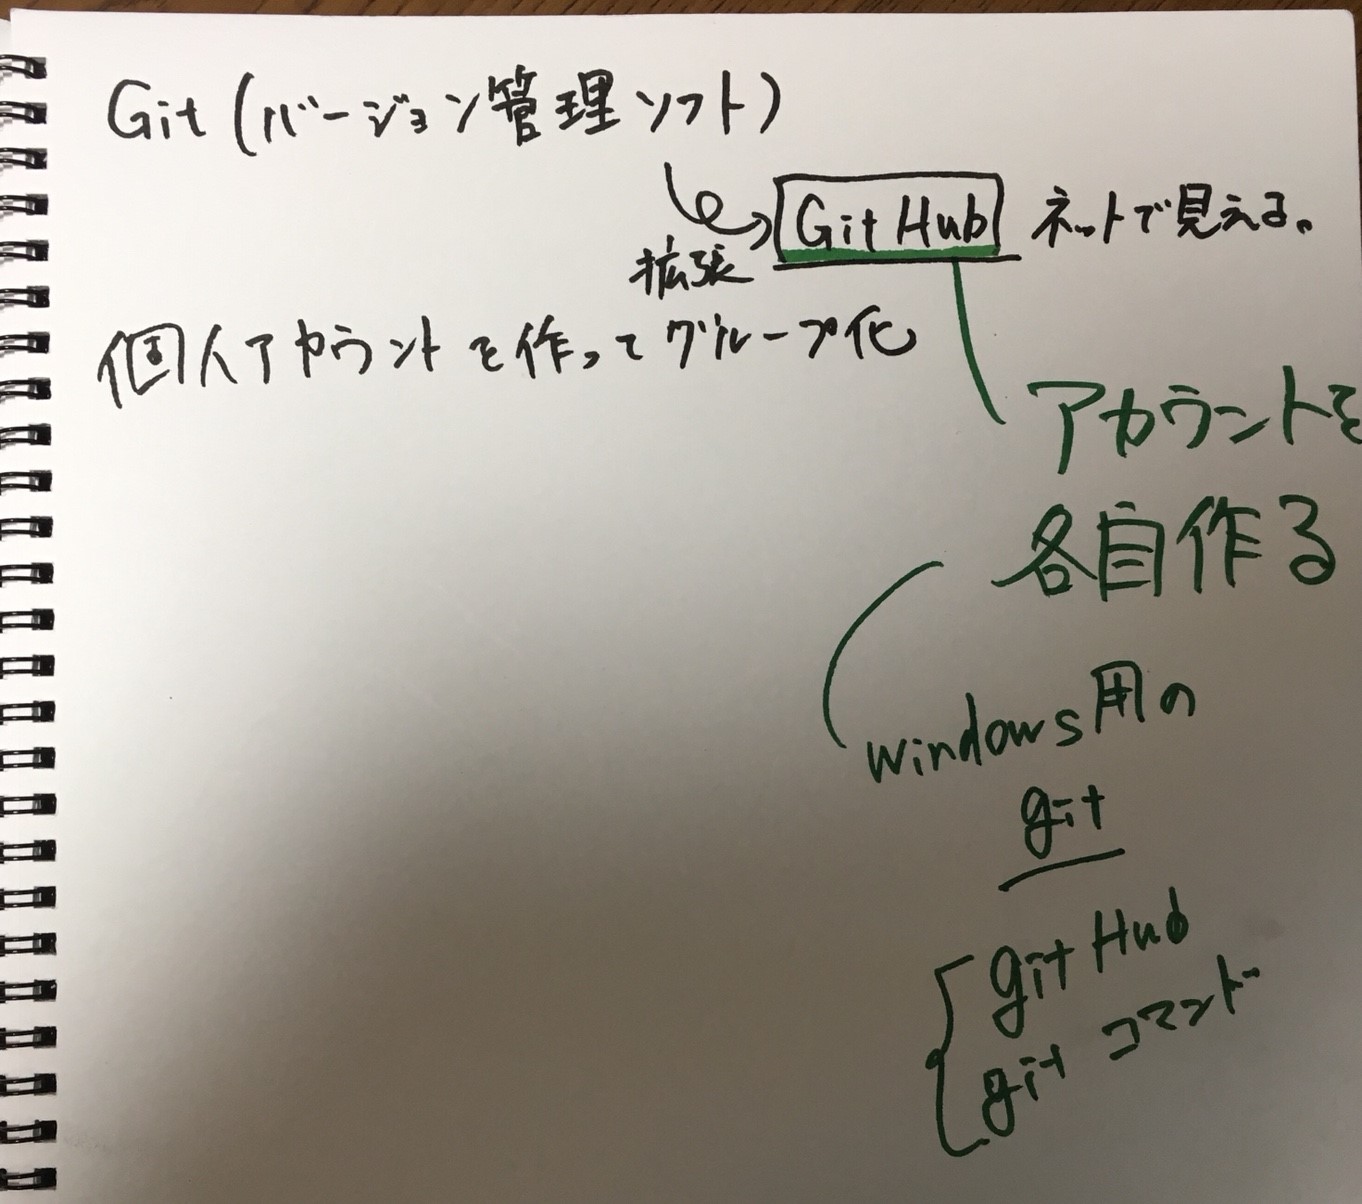 Git (バージョン管理ソフト)
GitHub ネットで見える。
拡張
個人アカウントを作ってグループ化
アカウントを
各自作る
windows用の
git
gitHub
git コマンド